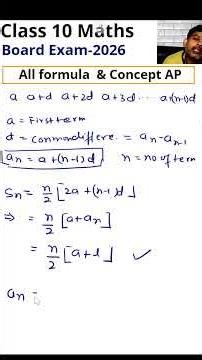 Class 10 Maths
Board Exam-2026
All formula & Concept AP
a a+d a+2d a+3d ... a+(n-1)d
a = First term
d = Common differe. = an - an-1
an = a + (n-1)d n = no of term
Sn = n/2 [2a + (n-1)d]
⇒ = n/2 [a + an]
= n/2 [a + l] ✓
an =